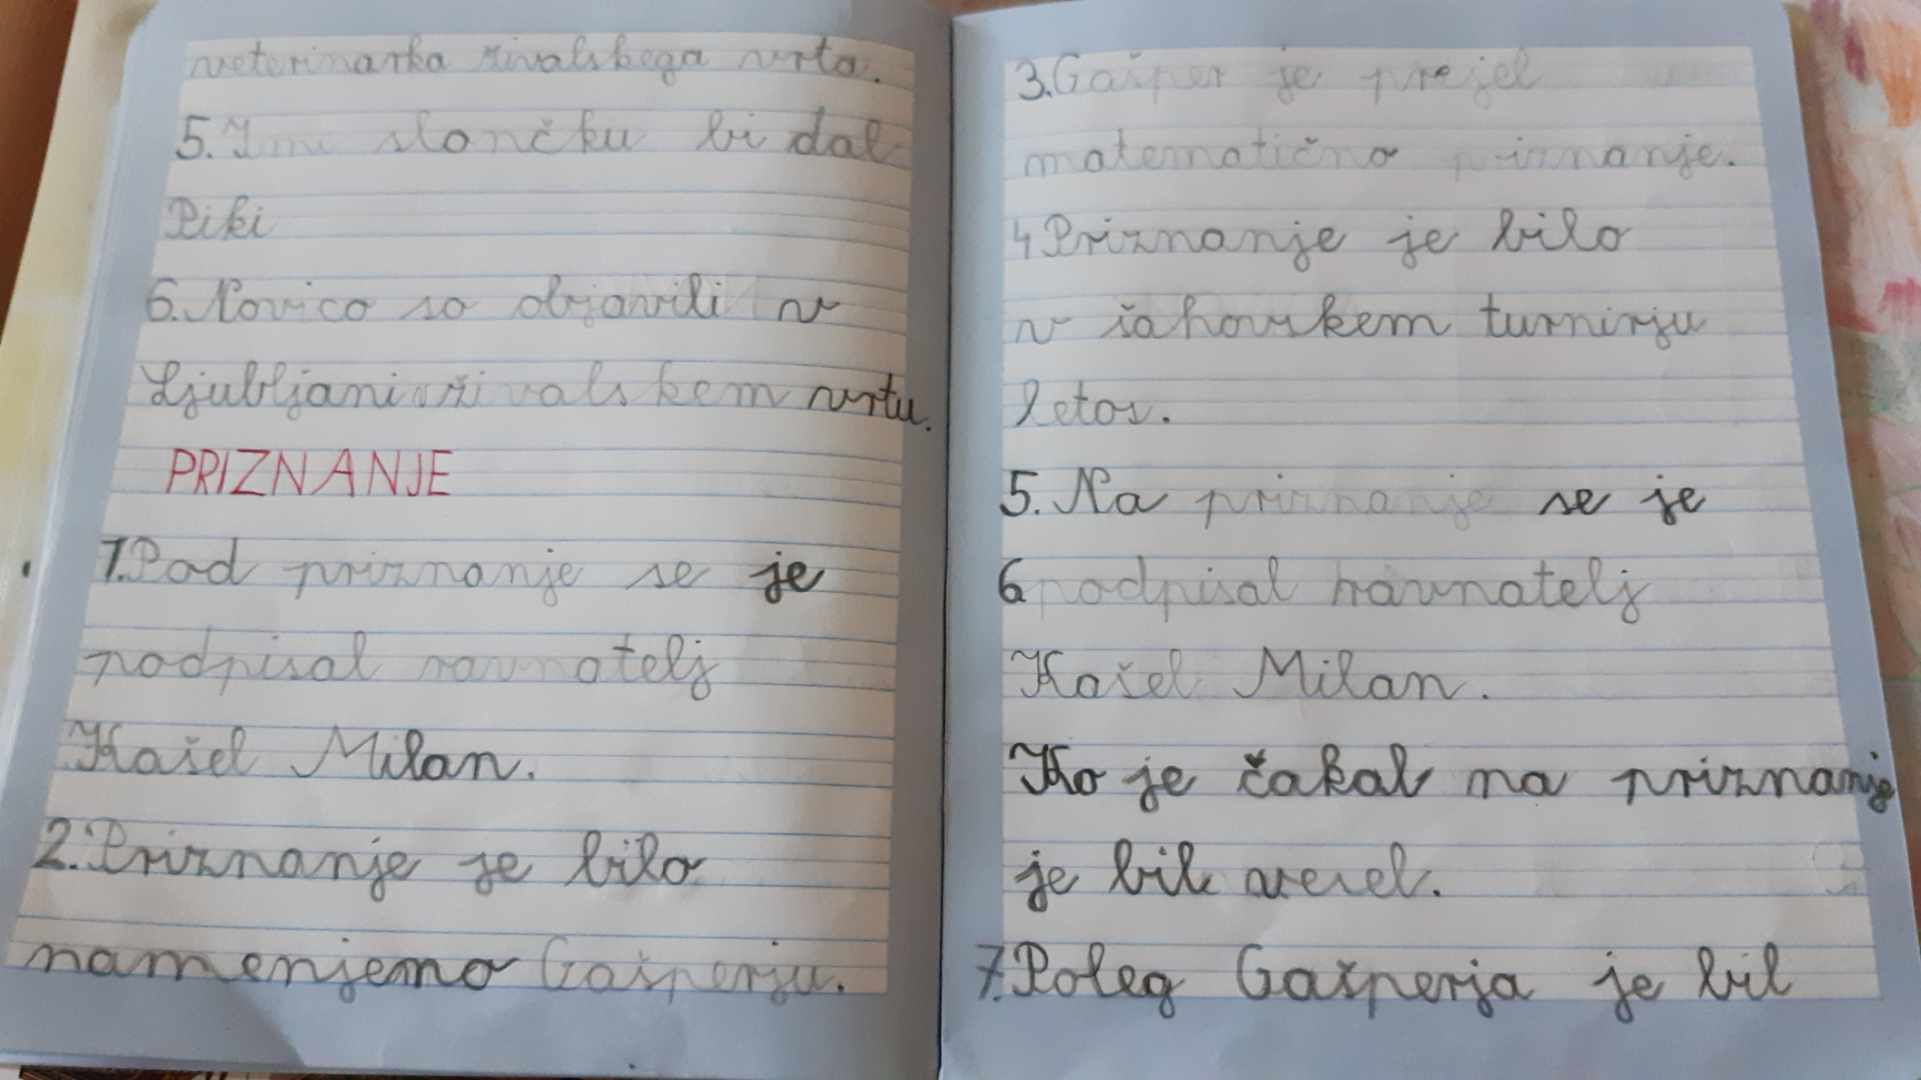 veterinarka živalskega vrta.
5. Ime slončku bi dal
Piki
6. Novico so objavili v
Ljubljani živalskem vrtu.
PRIZNANJE
1. Pod priznanje se je
podpisal ravnatelj
Kašel Milan.
2. Priznanje je bilo
namenjeno Gašperju.
3. Gašper je prejel
matematično priznanje.
4 Priznanje je bilo
v šahovskem turnirju
letos.
5. Na priznanje se je
6 podpisal ravnatelj
Kašel Milan.
Ko je čakal na priznanje
je bil vesel.
7. Poleg Gašperja je bil